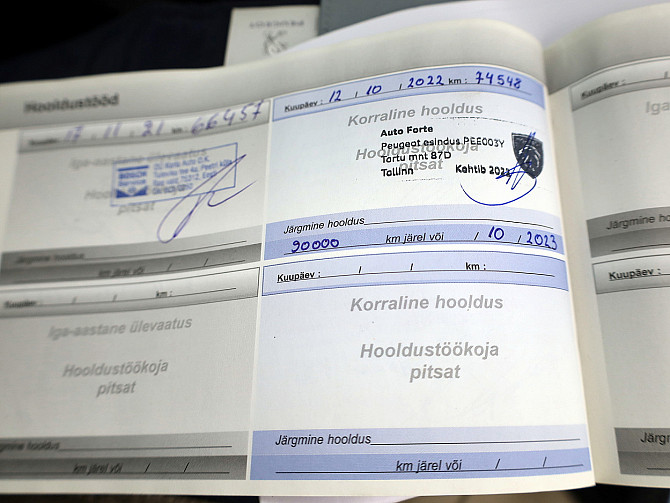 Hooldustööd
17 . 11 . 21 km : 66457
Iga-aastane ülevaatus
pitsat
km järel või / /
Kuupäev : 12 / 10 / 2022 km : 74548
Korraline hooldus
Auto Forte
Peugeot esindus PEE003Y
Hooldustöökoja
Tartu mnt 87D
Tallinn Kehtib 2022
pitsat
Järgmine hooldus
90000 km järel või / 10 / 2023
Kuupäev : / / km :
Iga-aastane ülevaatus
Hooldustöökoja
pitsat
Järgmine hooldus
km järel või / /
Kuupäev : / / km :
Korraline hooldus
Hooldustöökoja
pitsat
Järgmine hooldus
km järel või / /
Kuupäev :
Järgmine hooldus
Kuupäev :
Järgmine hooldus